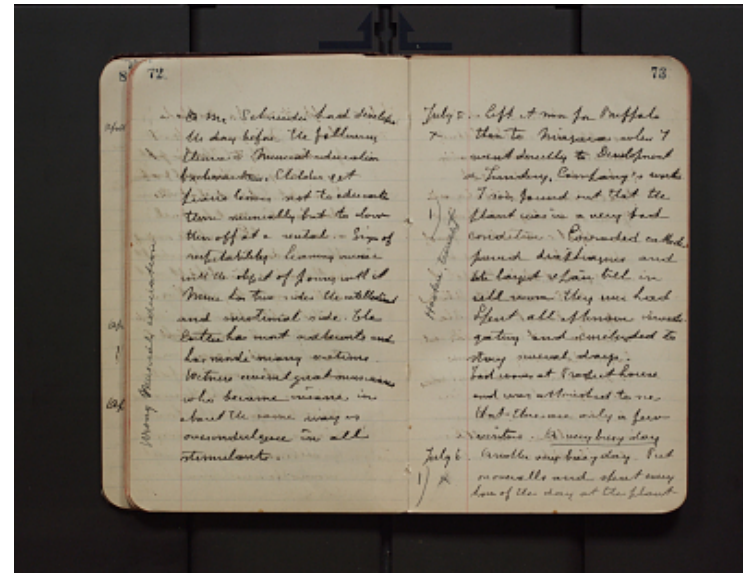 8
72
To Mr. Schneider had develope
the day before the following
theme. Musical education
backwards. Children get
piano lessons not to educate
them musically but to show
them off at a recital. Sign of
respectability. Learning music
with the object of
Music has two sides the intellectual
and emotional side. The
latter has most adherents and
has made many victims.
Witness several great musicians
who became insane in
about the same way as
overindulgence in all
stimulants.
Wrong Musical education
73
July 5. Left A mor for Buffalo
then to Niagara when I
went directly to Development
& Funding Company's works
I soon found out that the
plant was in a very bad
condition. Corroded cathodes
diaphragms and
the largest repair bill in
cell room they ever had
Spent all afternoon investi
gating and concluded to
stay several days.
Took room at Prospect house
and was astonished to see
that there are only a few
visitors. A very busy day
Hooker
July 6. Another very busy day. Put
on overalls and spent every
hour of the day at the plant